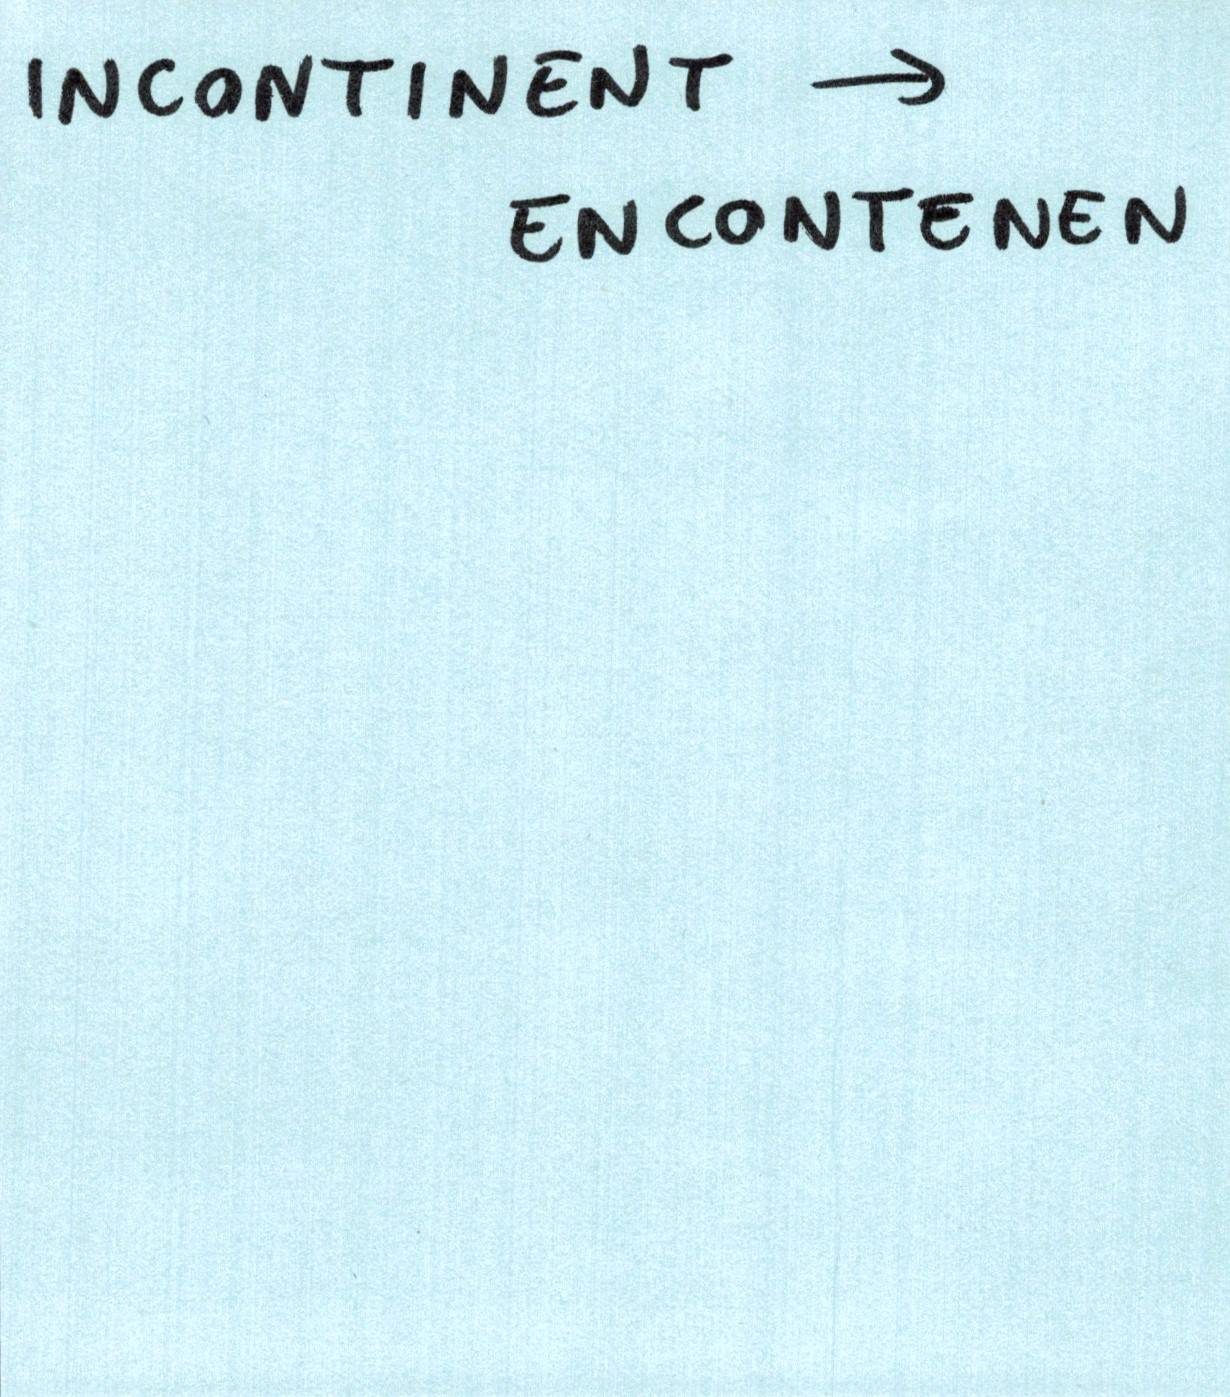 INCONTINENT →
ENCONTENEN